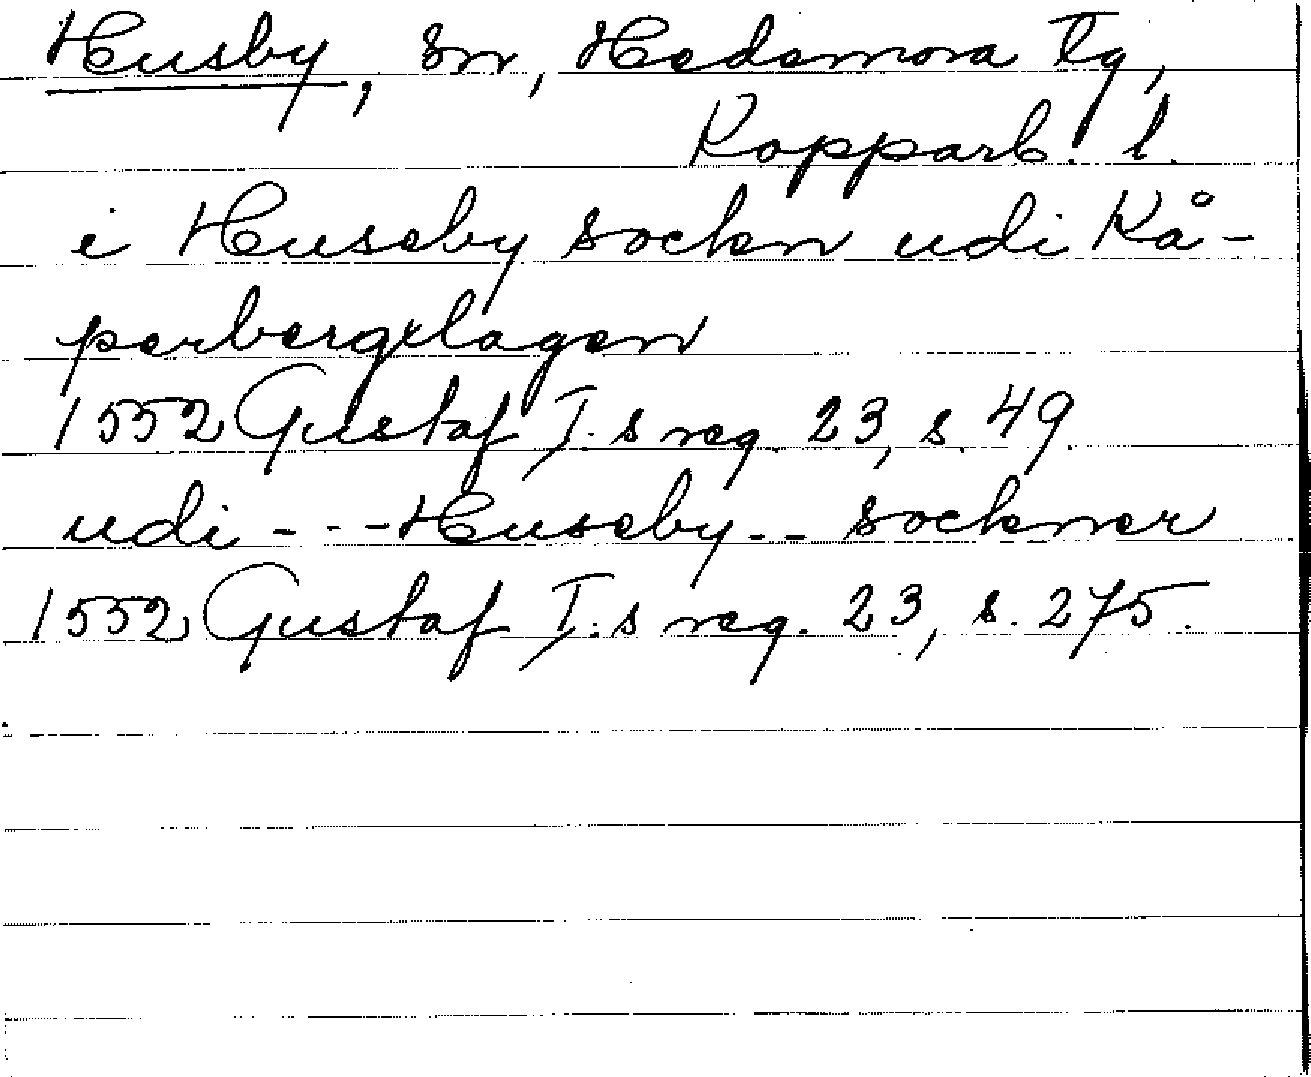 Husby, sn, Hedemora tg,
Kopparb. l.
i Huseby sockn udi Kå-
perbergxlagen
1552 Gustaf I:s reg. 23, s. 49.
udi - - - Huseby - - sockner
1552 Gustaf I:s reg. 23, s. 275.